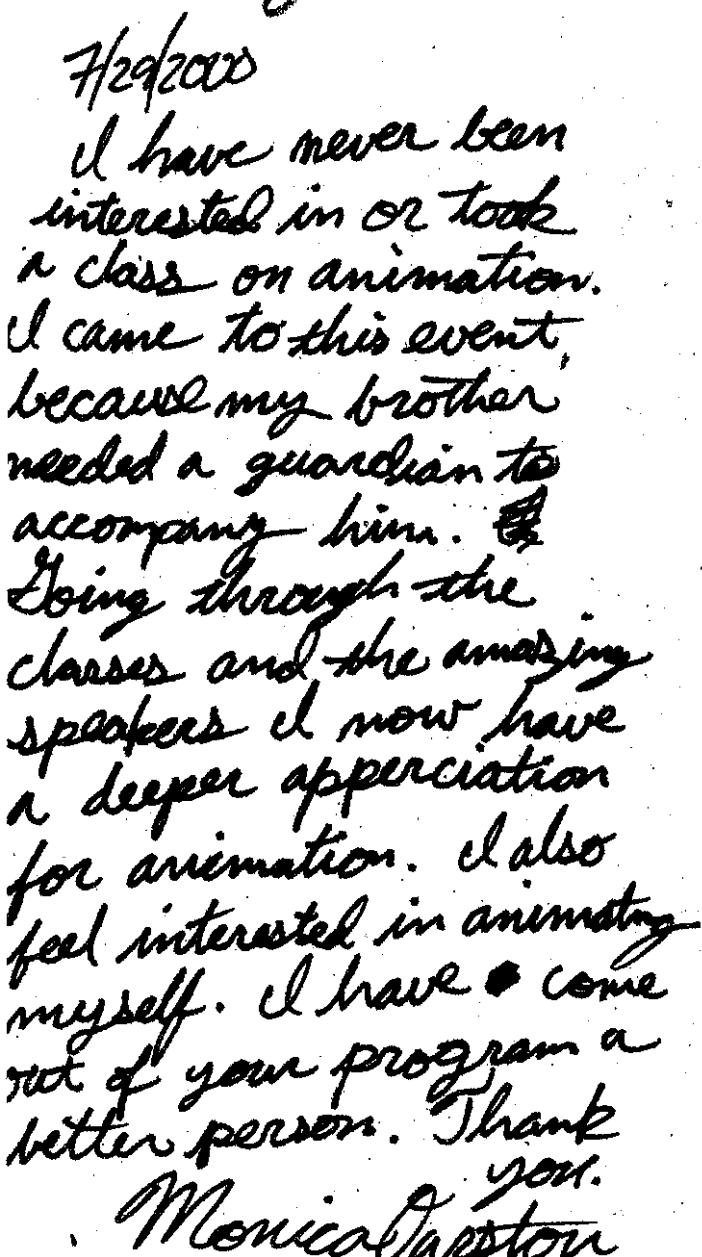 7/29/2000
I have never been
interested in or took
a class on animation.
I came to this event,
because my brother
needed a guardian to
accompany him.
Going through the
classes and the amazing
speakers I now have
a deeper apperciation
for animation. I also
feel interested in animating
myself. I have come
out of your program a
better person. Thank
you.
Monica